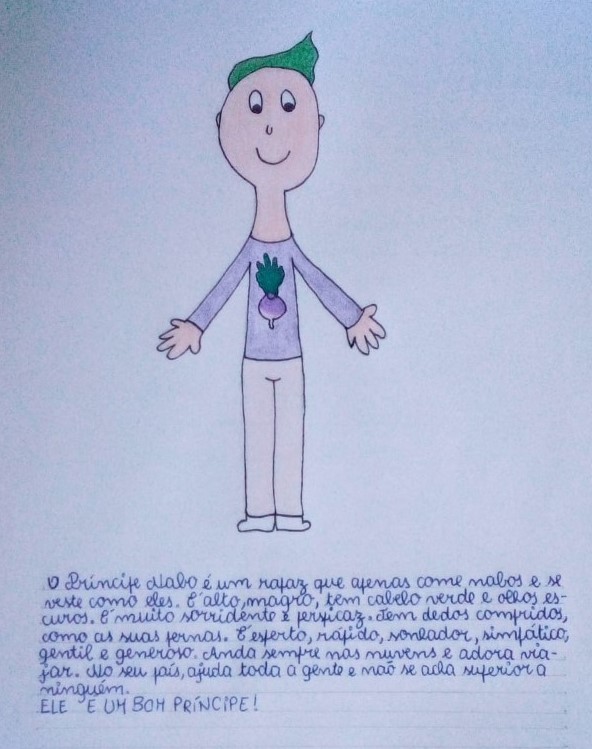 O Príncipe Nabo é um rapaz que apenas come nabos e se
veste como eles. É alto, magro, tem cabelo verde e olhos es-
curos. É muito sorridente e perspicaz. Tem dedos compridos,
como as suas pernas. É esperto, rápido, sonhador, simpático,
gentil e generoso. Anda sempre nas nuvens e adora via-
jar. No seu país, ajuda toda a gente e não se acha superior a
ninguém.
ELE É UM BOM PRÍNCIPE!